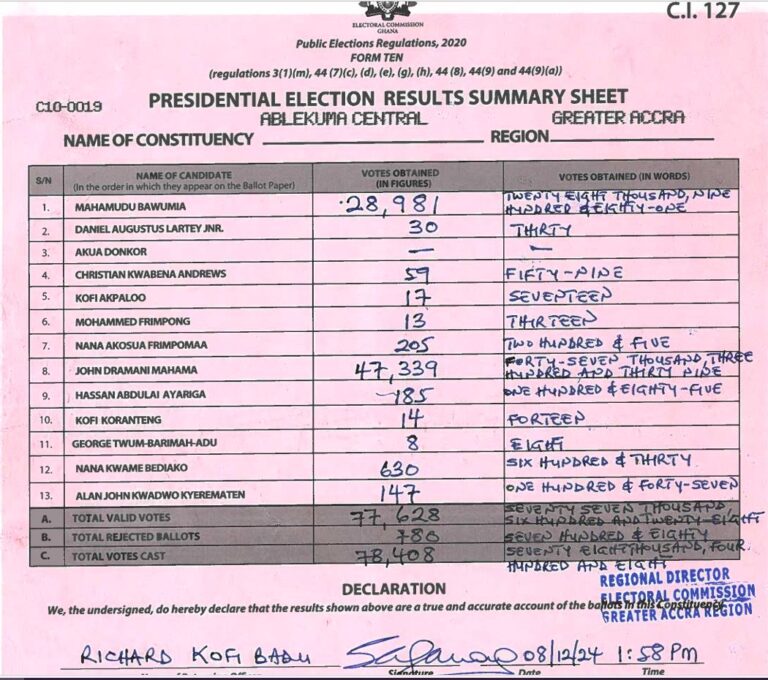 C.I. 127
ELECTORAL COMMISSION
GHANA
Public Elections Regulations, 2020
FORM TEN
(regulations 3(1)(m), 44(7)(c), (d), (e), (g), (h), 44 (8), 44(9) and 44(9)(a))
C10-0019
PRESIDENTIAL ELECTION RESULTS SUMMARY SHEET
ABLEKUMA CENTRAL GREATER ACCRA
NAME OF CONSTITUENCY REGION
S/N NAME OF CANDIDATE (In the order in which they appear on the Ballot Paper) VOTES OBTAINED (IN FIGURES) VOTES OBTAINED (IN WORDS)
1. MAHAMUDU BAWUMIA 28,981 TWENTY EIGHT THOUSAND, NINE HUNDRED & EIGHTY-ONE
2. DANIEL AUGUSTUS LARTEY JNR. 30 THIRTY
3. AKUA DONKOR — —
4. CHRISTIAN KWABENA ANDREWS 59 FIFTY-NINE
5. KOFI AKPALOO 17 SEVENTEEN
6. MOHAMMED FRIMPONG 13 THIRTEEN
7. NANA AKOSUA FRIMPOMAA 205 TWO HUNDRED & FIVE
8. JOHN DRAMANI MAHAMA 47,339 FORTY-SEVEN THOUSAND, THREE HUNDRED AND THIRTY NINE
9. HASSAN ABDULAI AYARIGA 185 ONE HUNDRED & EIGHTY-FIVE
10. KOFI KORANTENG 14 FORTEEN
11. GEORGE TWUM-BARIMAH-ADU 8 EIGHT
12. NANA KWAME BEDIAKO 630 SIX HUNDRED & THIRTY
13. ALAN JOHN KWADWO KYEREMATEN 147 ONE HUNDRED & FORTY-SEVEN
A. TOTAL VALID VOTES 77,628 SEVENTY SEVEN THOUSAND, SIX HUNDRED AND TWENTY-EIGHT
B. TOTAL REJECTED BALLOTS 780 SEVEN HUNDRED & EIGHTY
C. TOTAL VOTES CAST 78,408 SEVENTY EIGHT THOUSAND, FOUR HUNDRED AND EIGHT
DECLARATION
We, the undersigned, do hereby declare that the results shown above are a true and accurate account of the ballots in this Constituency.
REGIONAL DIRECTOR
ELECTORAL COMMISSION
GREATER ACCRA REGION
RICHARD KOFI BADU 08/12/24 1:58 PM
Signature Date Time